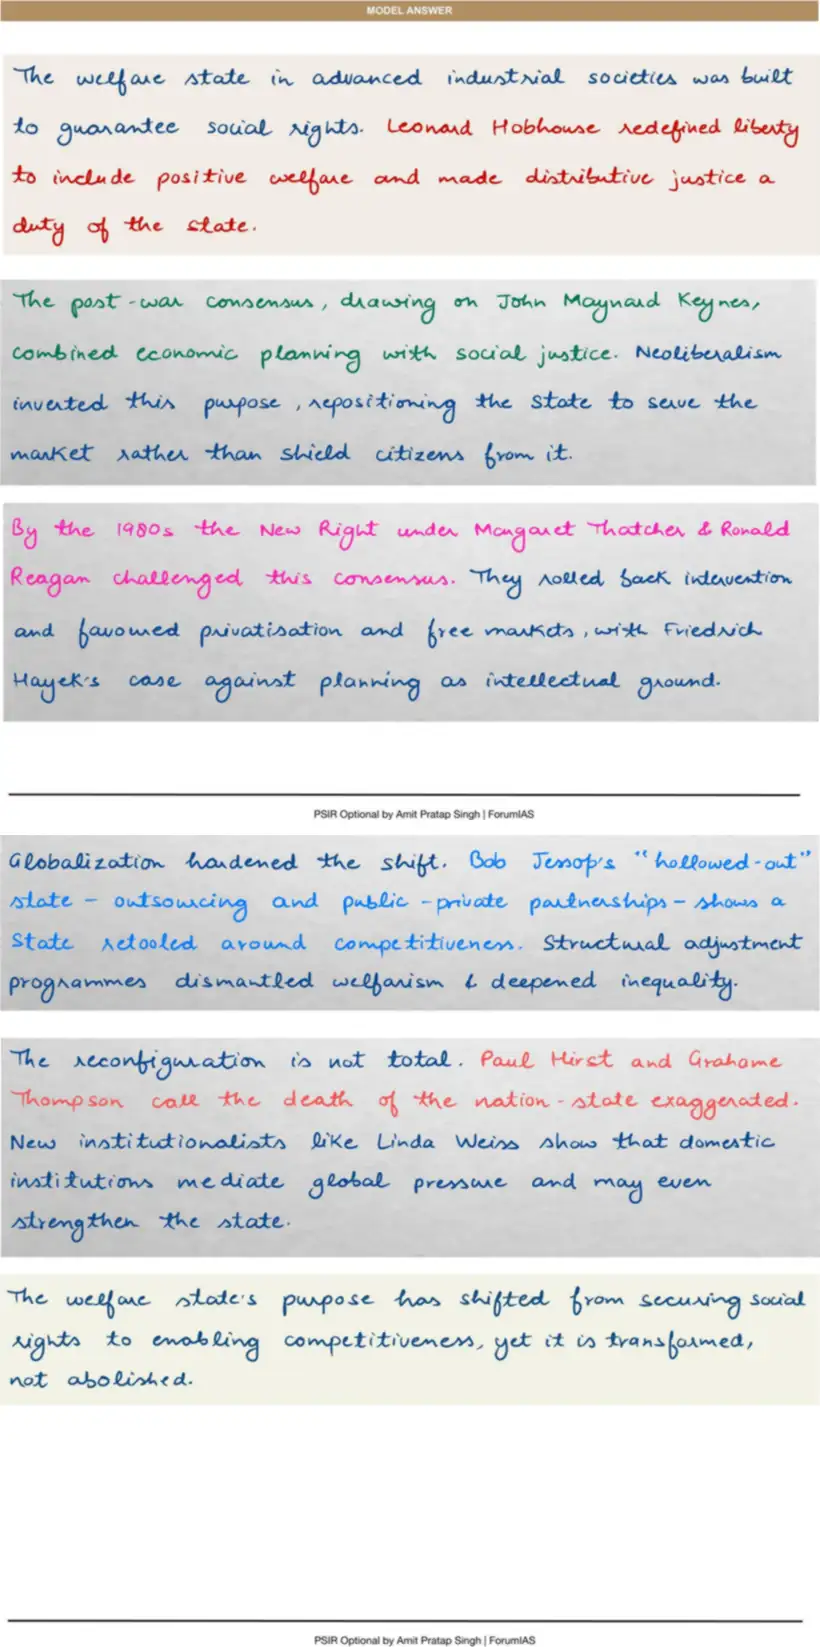 MODEL ANSWER
The welfare state in advanced industrial societies was built
to guarantee social rights. Leonard Hobhouse redefined liberty
to include positive welfare and made distributive justice a
duty of the state.
The post-war consensus, drawing on John Maynard Keynes,
combined economic planning with social justice. Neoliberalism
inverted this purpose, repositioning the State to serve the
market rather than shield citizens from it.
By the 1980s the New Right under Margaret Thatcher & Ronald
Reagan challenged this consensus. They rolled back intervention
and favoured privatisation and free markets, with Friedrich
Hayek's case against planning as intellectual ground.
PSIR Optional by Amit Pratap Singh | ForumIAS
Globalization hardened the shift. Bob Jessop's "hollowed-out"
state - outsourcing and public-private partnerships - shows a
State retooled around competitiveness. Structural adjustment
programmes dismantled welfarism & deepened inequality.
The reconfiguration is not total. Paul Hirst and Grahame
Thompson call the death of the nation-state exaggerated.
New institutionalists like Linda Weiss show that domestic
institutions mediate global pressure and may even
strengthen the state.
The welfare state's purpose has shifted from securing social
rights to enabling competitiveness, yet it is transformed,
not abolished.
PSIR Optional by Amit Pratap Singh | ForumIAS